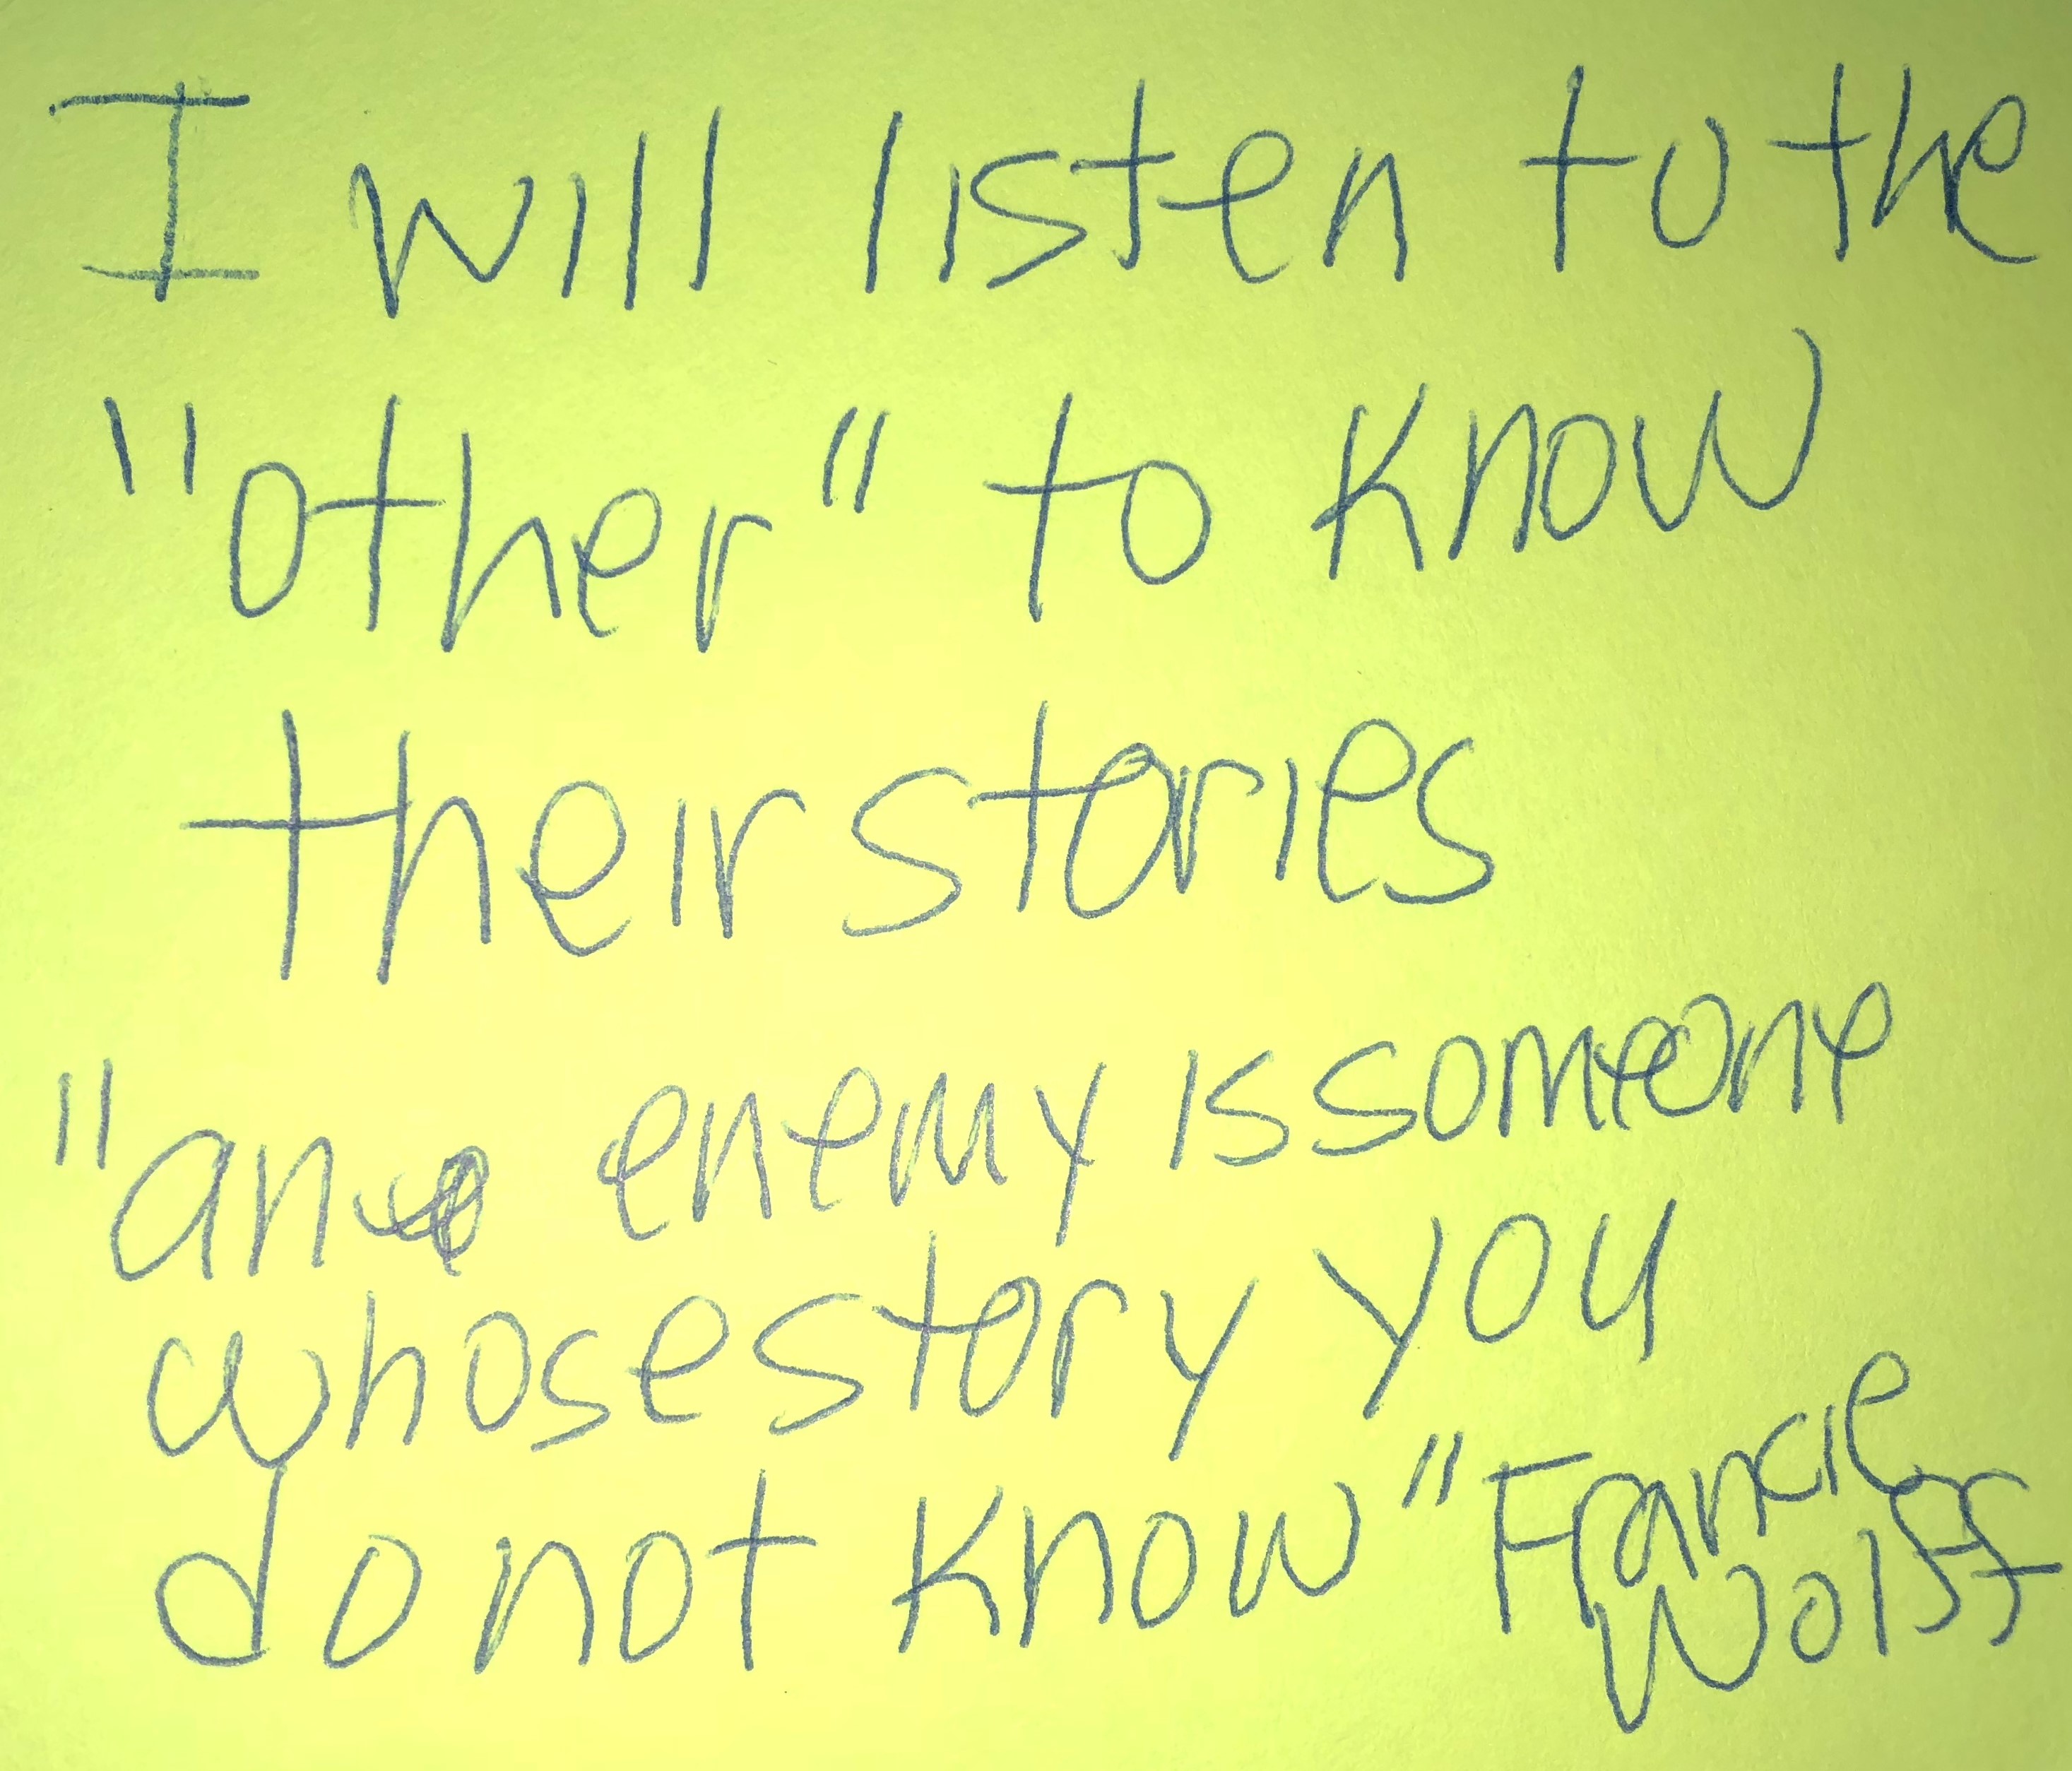 I will listen to the
"other" to know
their stories
"an enemy is someone
whose story you
do not know" Francie
Wolff